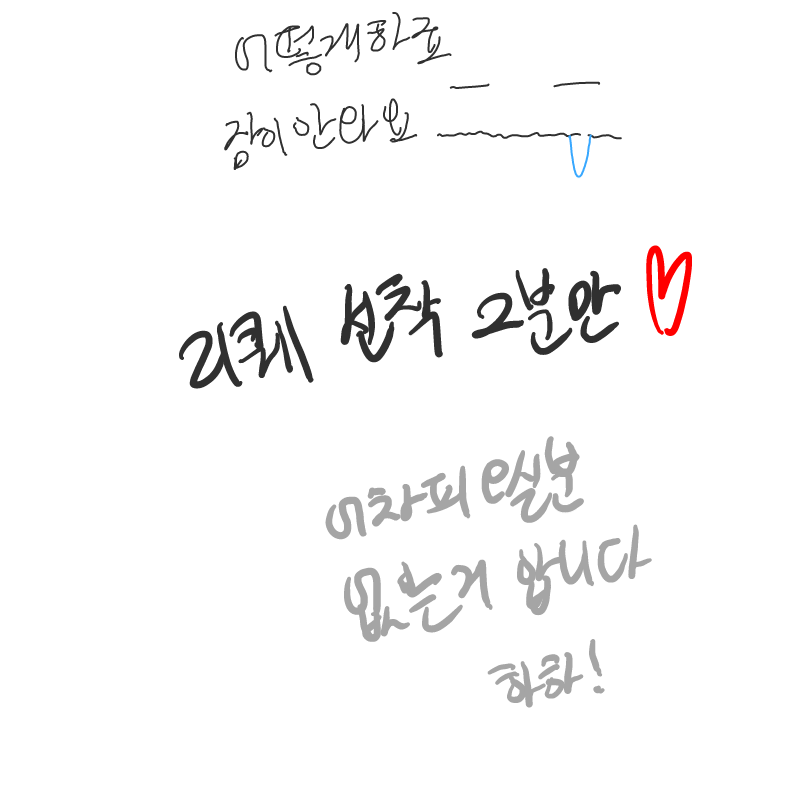 어떻게하죠
잠이안와요
리퀘 선착 2분만
어차피 오실분
없는거 압니다
하하!